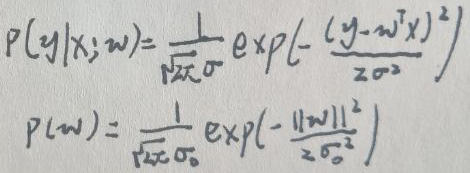 P(y|x;w)= 1/(√2π σ) exp(- (y-wᵀx)²/(2σ²))
P(w)= 1/(√2π σ₀) exp(- ||w||²/(2σ₀²))